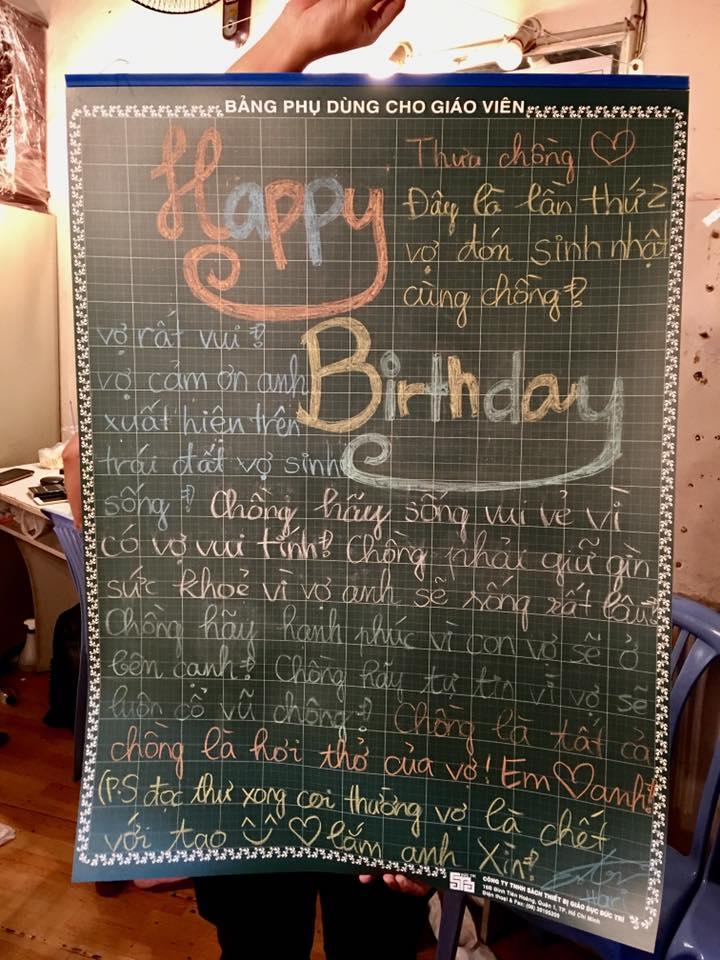 BẢNG PHỤ DÙNG CHO GIÁO VIÊN
Happy
Thưa chồng ♡
Đây là lần thứ 2
vợ đón sinh nhật
cùng chồng!
Birthday
vợ rất vui!
vợ cảm ơn anh
xuất hiện trên
trái đất vợ sinh
sống! Chồng hãy sống vui vẻ vì
có vợ vui tính! Chồng phải giữ gìn
sức khoẻ vì vợ anh sẽ xống rất lâu!
Chồng hãy hạnh phúc vì con vợ sẽ ở
bên cạnh! Chồng hãy tự tin vì vợ sẽ
luôn cổ vũ chồng! Chồng là tất cả
chồng là hơi thở của vợ! Em ♡ anh!
(P.S đọc thư xong coi thường vợ là chết
với tao ♡ lắm anh Xìn!
Hari
CÔNG TY TNHH SÁCH THIẾT BỊ GIÁO DỤC ĐỨC TRÍ
16B Đinh Tiên Hoàng, Quận 1, TP. Hồ Chí Minh